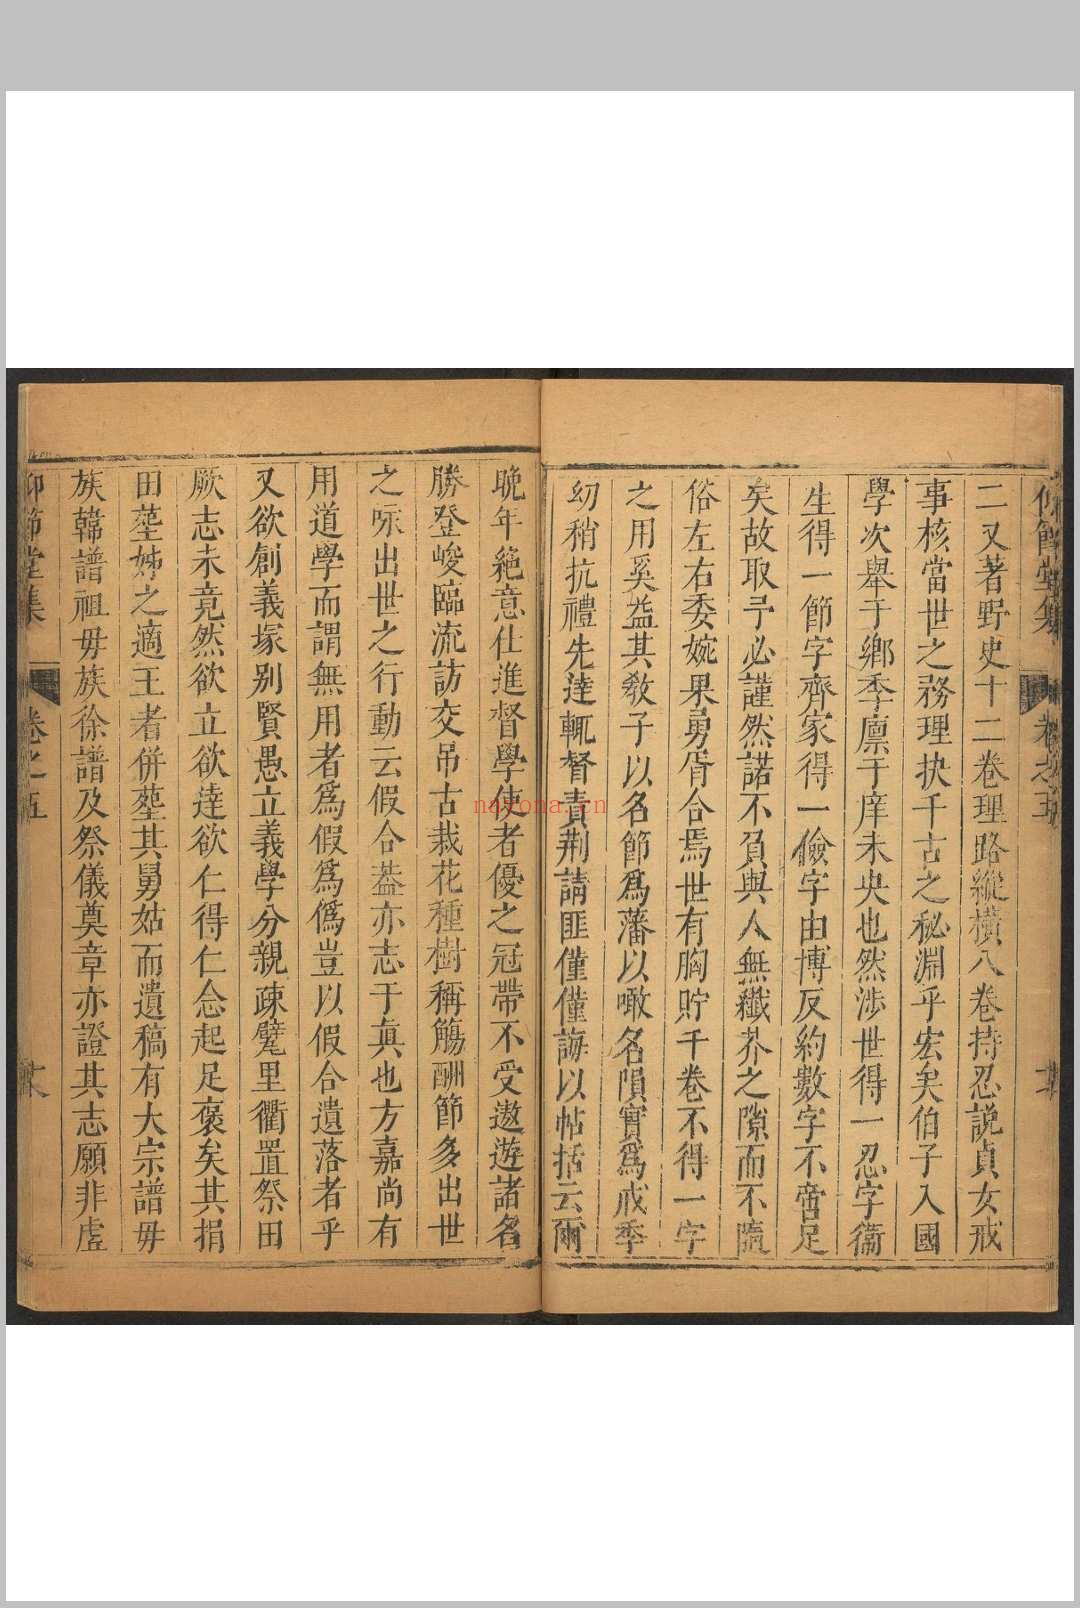 仰節堂集 卷之五
二又著野史十二卷理路縱橫八卷持忍說貞女戒
事核當世之務理抉千古之秘淵乎宏矣伯子入國
學次舉于鄉季廩于庠未央也然涉世得一忍字衞
生得一節字齊家得一儉字由博反約數字不啻足
矣故取予必謹然諾不負與人無纖芥之隙而不隨
俗左右委婉果勇胥合焉世有胸貯千卷不得一字
之用奚益其敎子以名節爲藩以噉名隕實爲戒季
幼稍抗禮先達輒督責荆請匪僅僅誨以帖括云爾
晩年絶意仕進督學使者優之冠帶不受遨遊諸名
勝登峻臨流訪交吊古栽花種樹稱觴酬節多出世
之咏出世之行動云假合葢亦志于眞也方嘉尚有
用道學而謂無用者爲假爲僞豈以假合遺落者乎
又欲創義塚别賢愚立義學分親疎甓里衢置祭田
厥志未竟然欲立欲達欲仁得仁念起足褒矣其捐
田塟姊之適王者併塟其舅姑而遺稿有大宗譜毋
族韓譜祖毋族徐譜及祭儀奠章亦證其志願非虛
仰節堂集 卷之五
nayona.cn